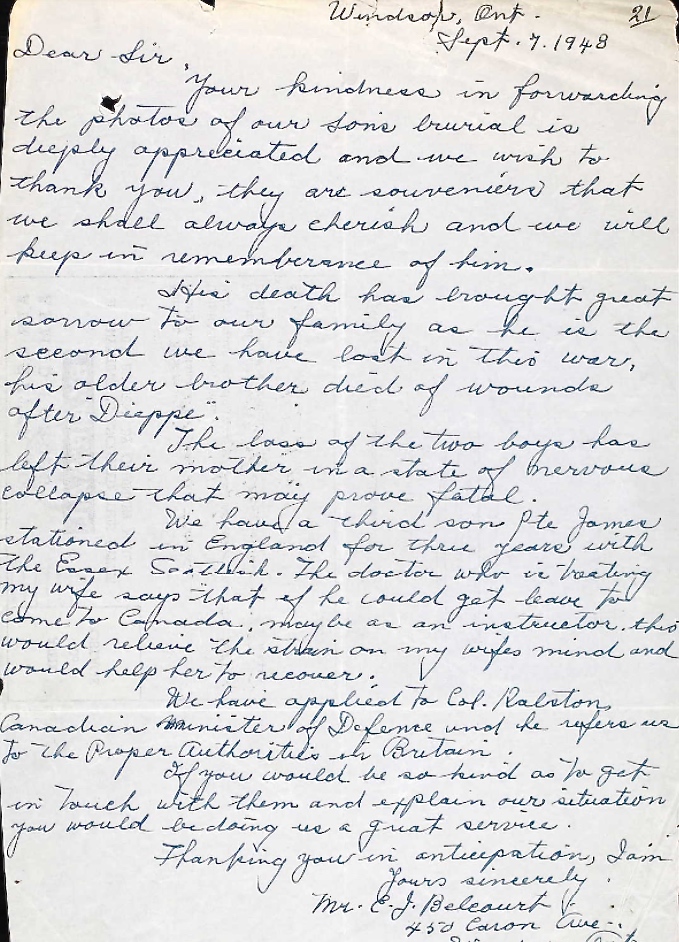 Windsor, Ont. 21
Sept. 7. 1943
Dear Sir,
Your kindness in forwarding
the photos of our sons burial is
deeply appreciated and we wish to
thank you, they are souveniers that
we shall always cherish and we will
keep in rememberance of him.
His death has brought great
sorrow to our family as he is the
second we have lost in this war,
his older brother died of wounds
after "Dieppe".
The loss of the two boys has
left their mother in a state of nervous
collapse that may prove fatal.
We have a third son Pte James
stationed in England for three years with
the Essex Scottish. The doctor who is treating
my wife says that if he could get leave to
come to Canada, maybe as an instructor, this
would relieve the strain on my wifes mind and
would help her to recover.
We have applied to Col. Ralston,
Canadian Minister of Defence and he refers us
to the Proper Authorities in Britain.
If you would be so kind as to get
in touch with them and explain our situation
you would be doing us a great service.
Thanking you in anticipation, I am
Yours sincerely.
Mr. E. J. Belcourt
450 Caron Ave.